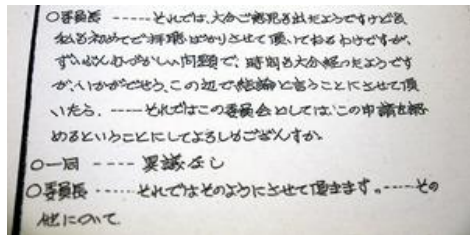 ○委員長 -----それでは、大分ご意見も出たようですけども
私も初めてで拝聴ばかりさせて頂いておるわけですが、
ずいぶんむづかしい問題で、時刻も大分経ったようです
が、いかがでせう、この辺で結論と言うことにさせて頂
いたら、-----それではこの委員会としては、この申請を認
めるということにしてよろしゅござんすか。
○一同 ----- 異議なし
○委員長 ------それではそのようにさせて頂きます。-----その
他について